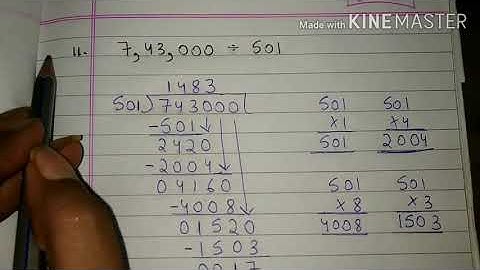 Made with KINEMASTER
11. 7,43,000 ÷ 501
1483
501)743000(
-501
2420
-2004
04160
-4008
01520
-1503
0017
501 501
x1 x4
501 2004
501 501
x8 x3
4008 1503